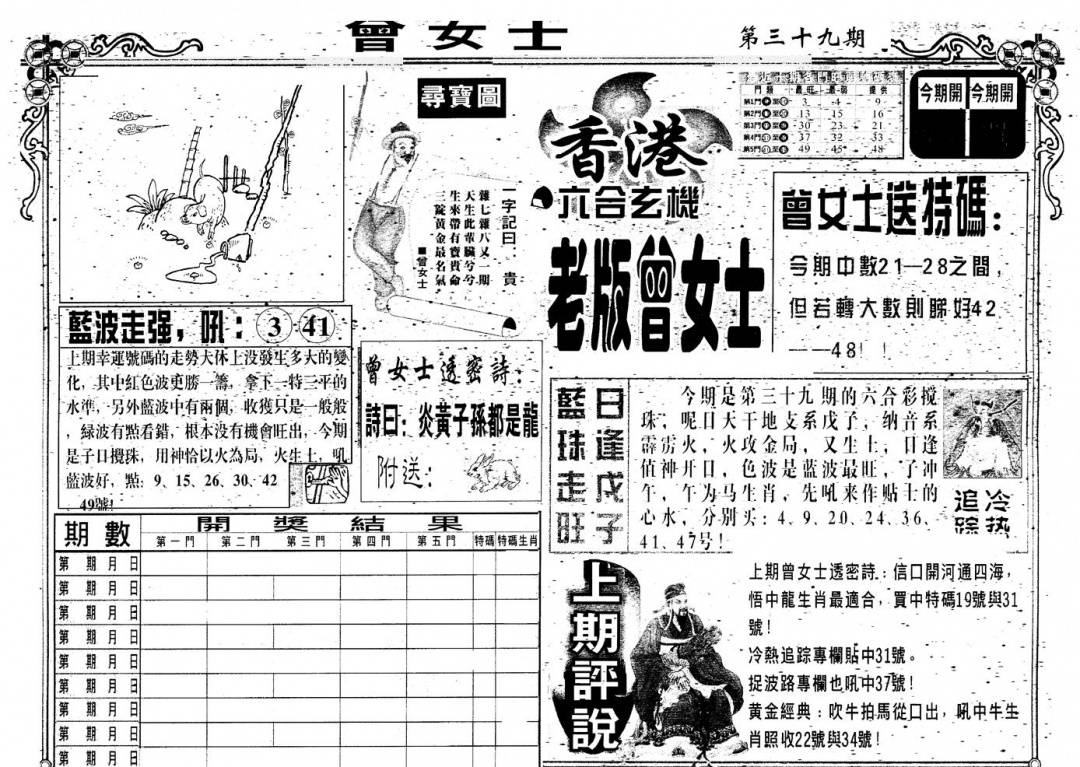 曾女士
第三十九期
尋寶圖
一字記曰：貴
雜七雜八又一期
天生此輩臟兮兮
生來帶有寶貴命
三錠黃金最名氣
■曾女士
藍波走强，吼：3 41
上期幸運號碼的走勢大体上没發生多大的變
化，其中紅色波更勝一籌，拿下一特三平的
水準，另外藍波中有兩個，收獲只是一般般
，綠波有點看錯，根本没有機會旺出，今期
是子日攪珠，用神恰以火為局，火生土，吼
藍波好，點：9、15、26、30、42
、49號!
曾女士透密詩：
詩曰：炎黃子孫都是龍
附送：
期數
開獎結果
第一門 第二門 第三門 第四門 第五門 特碼 特碼生肖
第 期 月 日
第 期 月 日
第 期 月 日
第 期 月 日
第 期 月 日
第 期 月 日
第 期 月 日
第 期 月 日
第 期 月 日
香港
六合玄機
老版曾女士
門類 最旺 最弱 提供
第1門 3 4 9
第2門 13 15 16
第3門 30 23 21
第4門 37 32 33
第5門 49 45 48
今期開 今期開
曾女士送特碼：
今期中數21—28之間，
但若轉大數則睇好42
——48！！
藍珠走旺
日逢戊子
今期是第三十九期的六合彩攪
珠，呢日天干地支系戊子，纳音系
霹雳火，火攻金局，又生土，日逢
值神开日，色波是蓝波最旺，子冲
午，午为马生肖，先吼来作贴士的
心水，分别买：4、9、20、24、36、
41、47号！
冷热
追踪
上期評說
上期曾女士透密詩：信口開河通四海，
悟中龍生肖最適合，買中特碼19號與31
號！
冷熱追踪專欄貼中31號。
捉波路專欄也吼中37號！
黃金經典：吹牛拍馬從口出，吼中牛生
肖照收22號與34號！